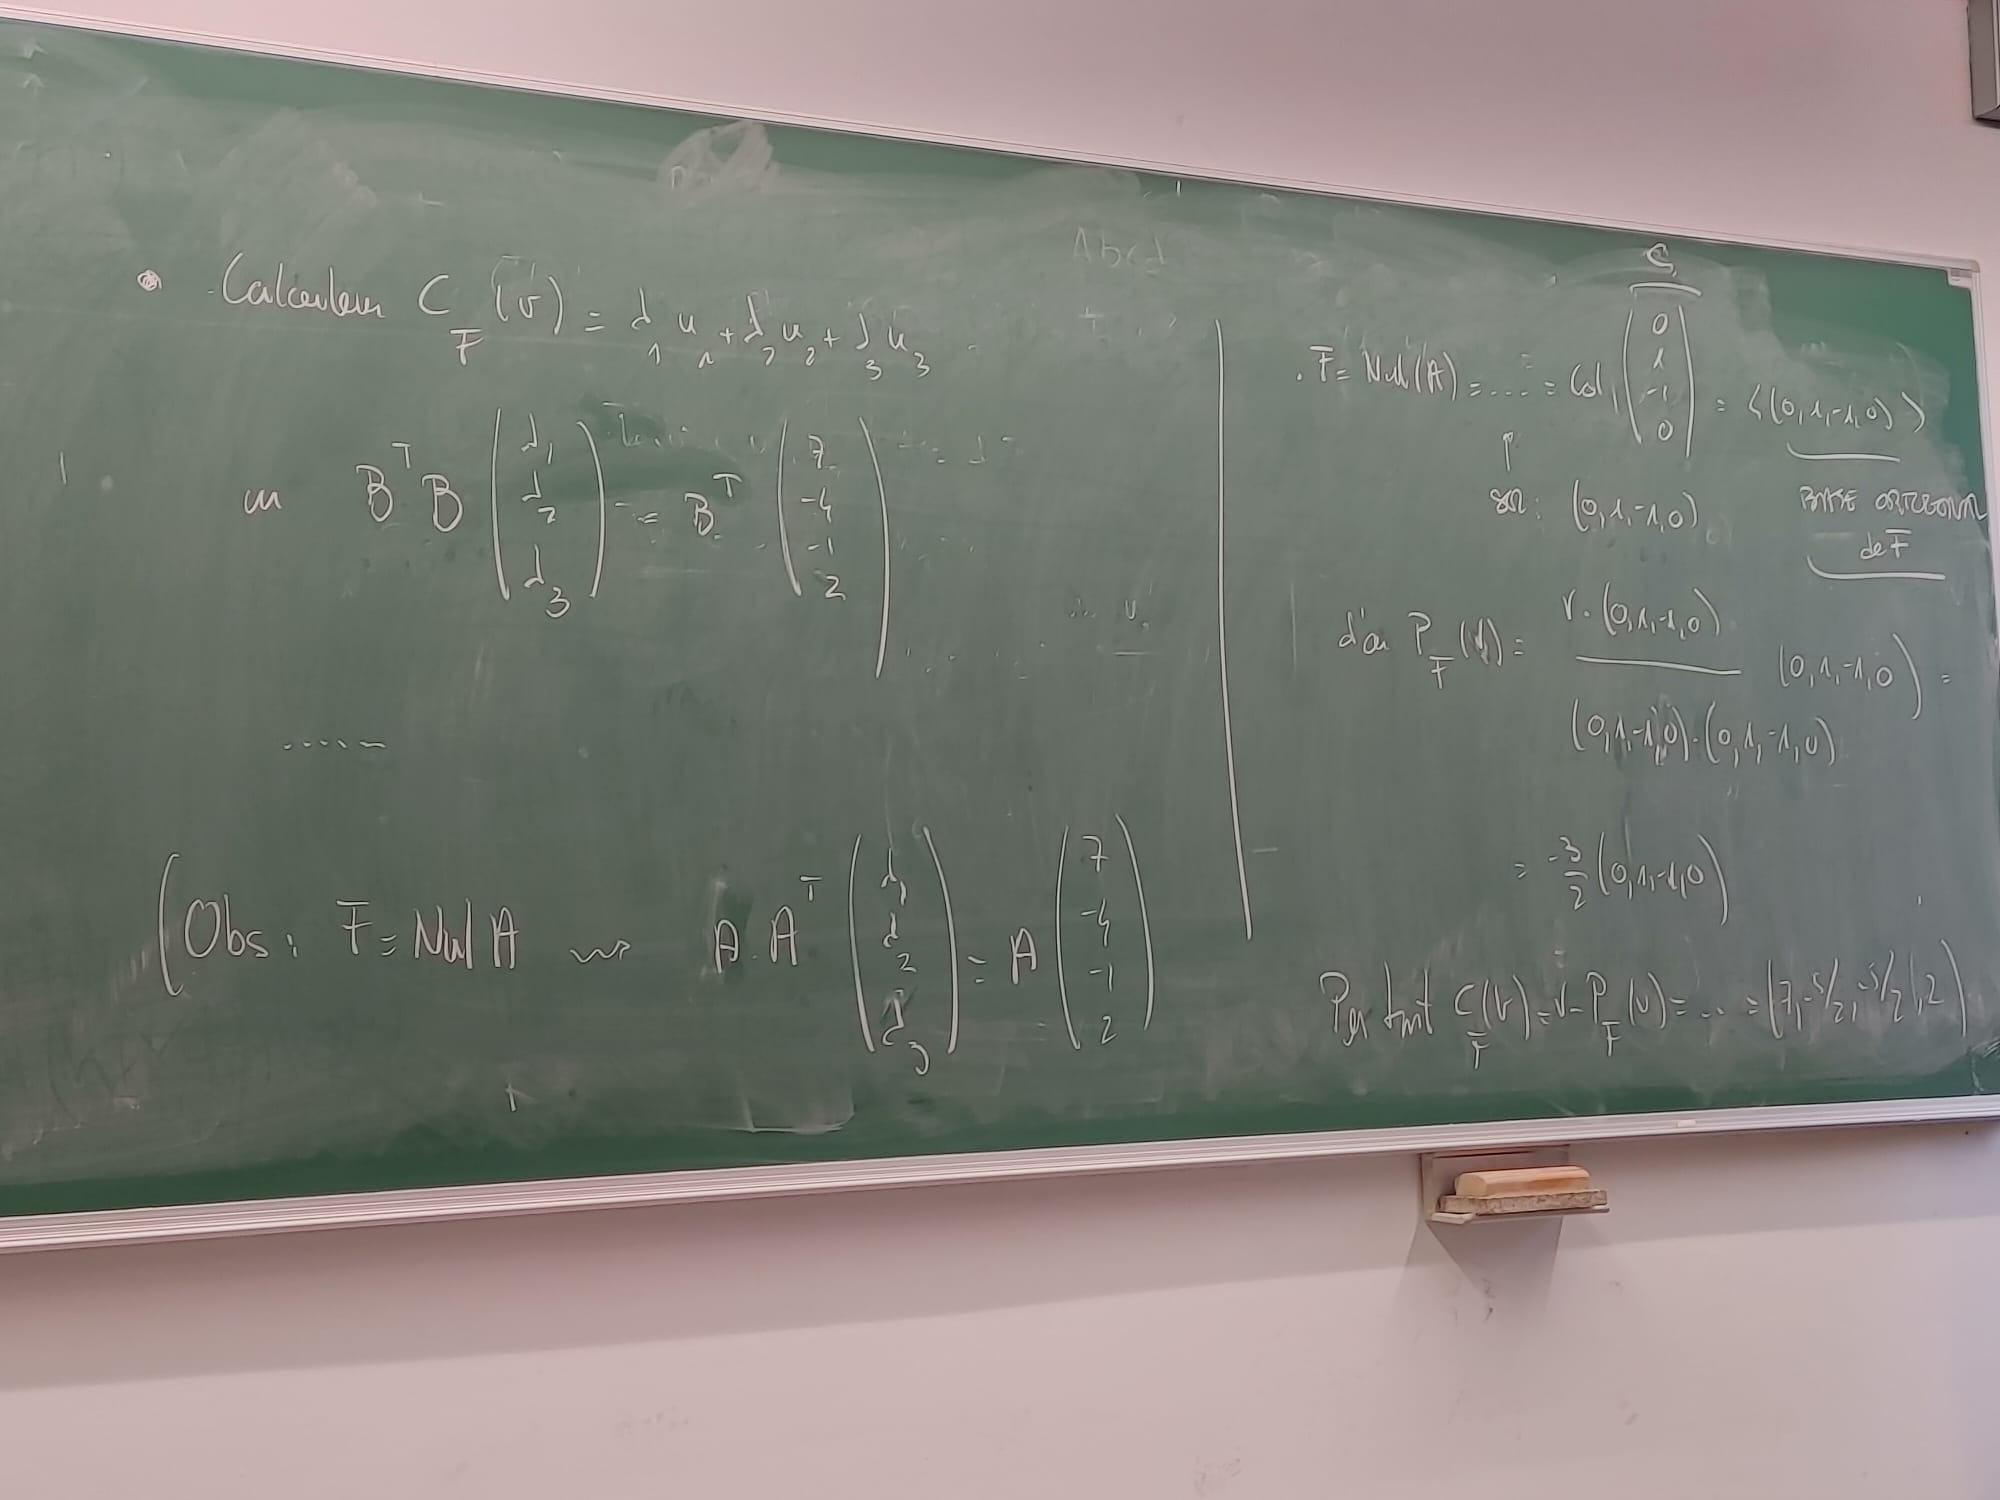 • Calculem C_F(v) = λ₁u₁ + λ₂u₂ + λ₃u₃
on BᵀB (λ₁ λ₂ λ₃) = Bᵀ (7 -4 -1 2)
.....
(Obs: F = Nul A ⇝ A·Aᵀ (λ₁ λ₂ λ₃) = A (7 -4 -1 2)
C
· F = Nul(A) = .... = Col (0 1 -1 0) = <(0,1,-1,0)>
↑
sol: (0,1,-1,0)
BASE ORTOGONAL
de F
d'on P_F(v) = v·(0,1,-1,0) / (0,1,-1,0)·(0,1,-1,0) (0,1,-1,0) =
= -3/2 (0,1,-1,0)
Per tant C_F(v) = v - P_F(v) = ... = (7, -5/2, -5/2, 2)